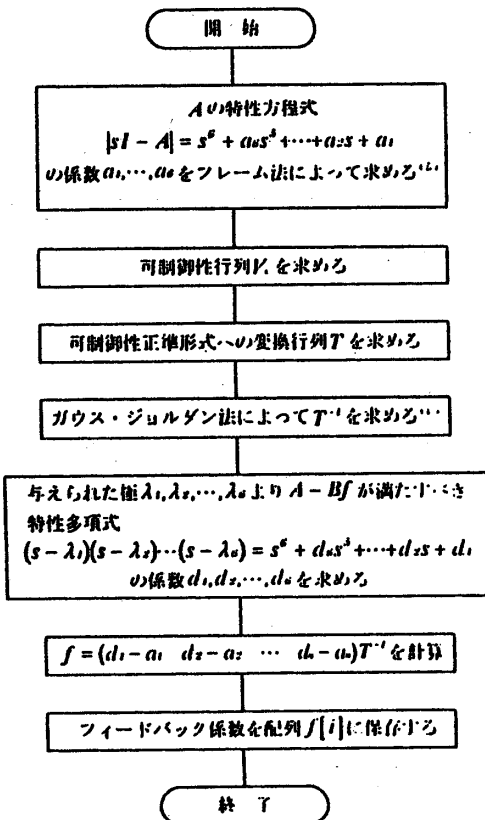 開 始
Aの特性方程式
|sI − A| = s⁶ + a₆s⁵ + ⋯ + a₂s + a₁
の係数a₁,⋯,a₆をフレーム法によって求める
可制御性行列V を求める
可制御性正準形式への変換行列Tを求める
ガウス・ジョルダン法によってT⁻¹を求める
与えられた極λ₁,λ₂,⋯,λ₆より A − Bf が満たすべき
特性多項式
(s − λ₁)(s − λ₂)⋯(s − λ₆) = s⁶ + d₆s⁵ + ⋯ + d₂s + d₁
の係数d₁,d₂,⋯,d₆を求める
f = (d₁ − a₁ d₂ − a₂ ⋯ d₆ − a₆)T⁻¹を計算
フィードバック係数を配列f[i]に保存する
終 了